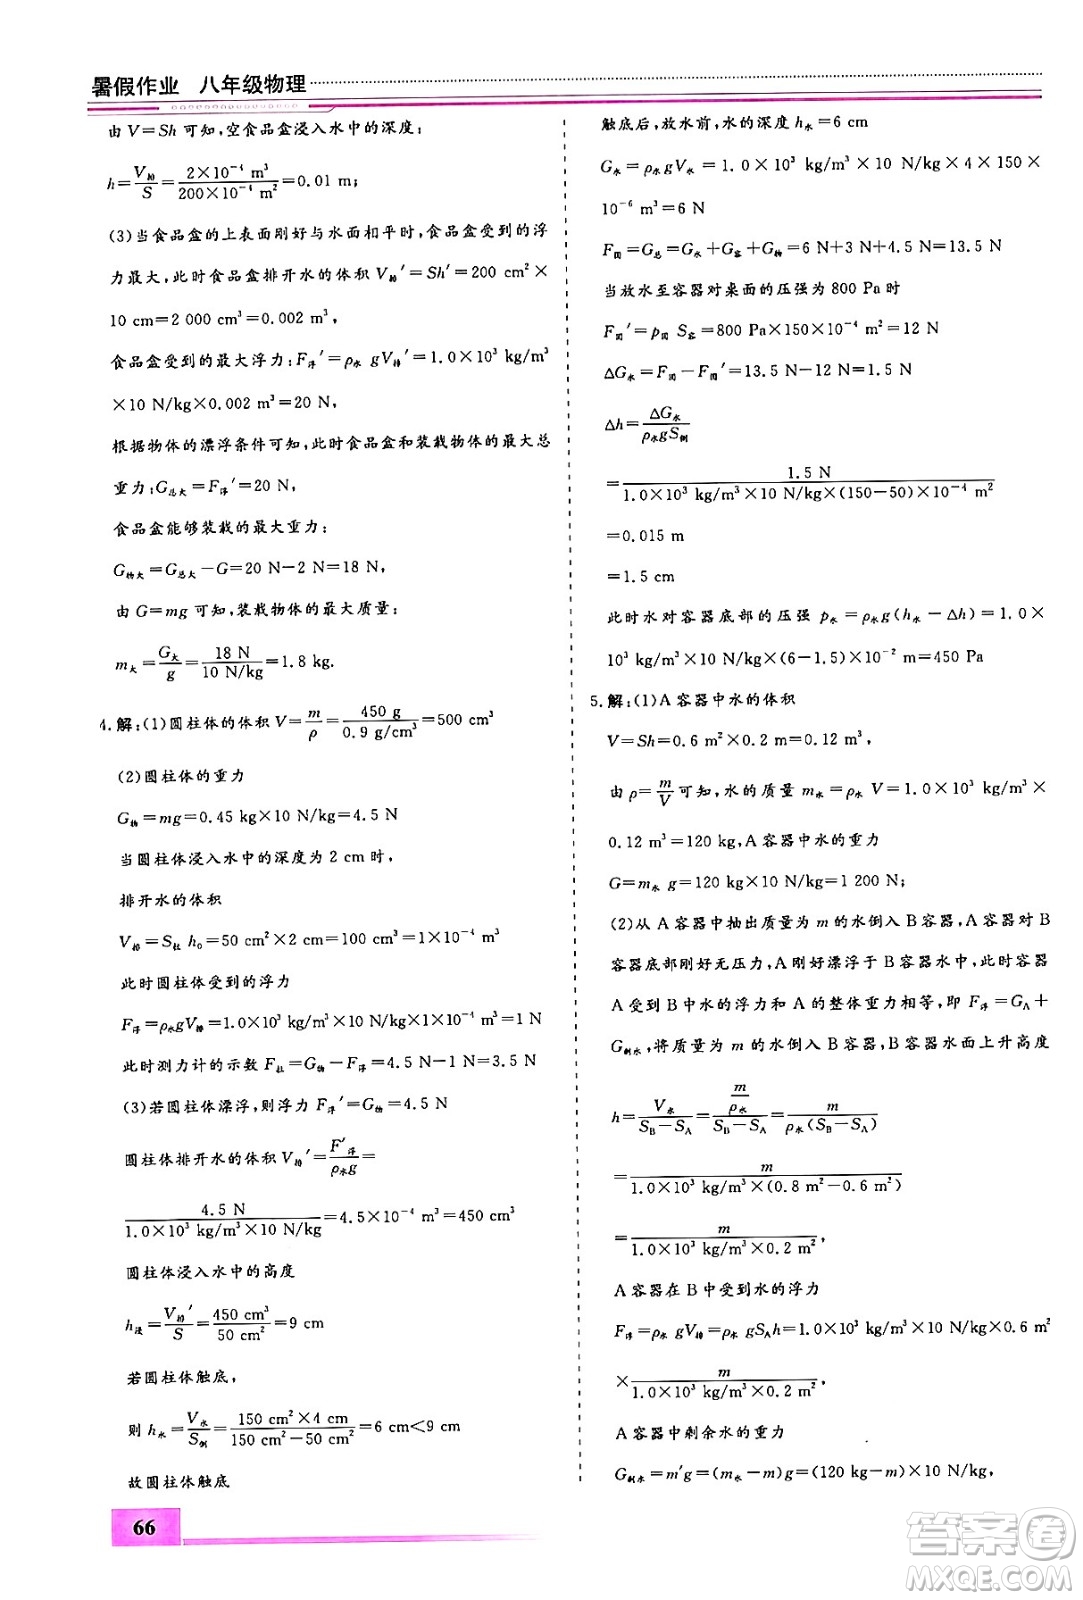 暑假作业　八年级物理
由 V=Sh 可知,空食品盒浸入水中的深度:
h=V排/S=2×10⁻⁴ m³/200×10⁻⁴ m²=0.01 m;
(3)当食品盒的上表面刚好与水面相平时,食品盒受到的浮
力最大,此时食品盒排开水的体积 V排′=Sh′=200 cm²×
10 cm=2 000 cm³=0.002 m³,
食品盒受到的最大浮力:F浮′=ρ水 gV排′=1.0×10³ kg/m³
×10 N/kg×0.002 m³=20 N,
根据物体的漂浮条件可知,此时食品盒和装载物体的最大总
重力:G总大=F浮′=20 N,
食品盒能够装载的最大重力:
G物大=G总大-G=20 N-2 N=18 N,
由 G=mg 可知,装载物体的最大质量:
m大=G大/g=18 N/10 N/kg=1.8 kg.
4.解:(1)圆柱体的体积 V=m/ρ=450 g/0.9 g/cm³=500 cm³
(2)圆柱体的重力
G物=mg=0.45 kg×10 N/kg=4.5 N
当圆柱体浸入水中的深度为 2 cm 时,
排开水的体积
V排=S柱 h₀=50 cm²×2 cm=100 cm³=1×10⁻⁴ m³
此时圆柱体受到的浮力
F浮=ρ水gV排=1.0×10³ kg/m³×10 N/kg×1×10⁻⁴ m³=1 N
此时测力计的示数 F拉=G物-F浮=4.5 N-1 N=3.5 N
(3)若圆柱体漂浮,则浮力 F浮′=G物=4.5 N
圆柱体排开水的体积 V排′=F′浮/ρ水g=
4.5 N/1.0×10³ kg/m³×10 N/kg=4.5×10⁻⁴ m³=450 cm³
圆柱体浸入水中的高度
h浸=V排′/S=450 cm³/50 cm²=9 cm
若圆柱体触底,
则 h水=V水/S侧=150 cm²×4 cm/150 cm²-50 cm²=6 cm<9 cm
故圆柱体触底
触底后,放水前,水的深度 h水=6 cm
G水=ρ水gV水=1.0×10³ kg/m³×10 N/kg×4×150×
10⁻⁶ m³=6 N
F固=G总=G水+G容+G物=6 N+3 N+4.5 N=13.5 N
当放水至容器对桌面的压强为 800 Pa 时
F固′=p固 S容=800 Pa×150×10⁻⁴ m²=12 N
ΔG水=F固-F固′=13.5 N-12 N=1.5 N
Δh=ΔG水/ρ水gS侧
=1.5 N/1.0×10³ kg/m³×10 N/kg×(150-50)×10⁻⁴ m²
=0.015 m
=1.5 cm
此时水对容器底部的压强 p水=ρ水g(h水-Δh)=1.0×
10³ kg/m³×10 N/kg×(6-1.5)×10⁻² m=450 Pa
5.解:(1)A 容器中水的体积
V=Sh=0.6 m²×0.2 m=0.12 m³,
由 ρ=m/V可知,水的质量 m水=ρ水 V=1.0×10³ kg/m³×
0.12 m³=120 kg,A 容器中水的重力
G=m水 g=120 kg×10 N/kg=1 200 N;
(2)从 A 容器中抽出质量为 m 的水倒入 B 容器,A 容器对 B
容器底部刚好无压力,A 刚好漂浮于 B 容器水中,此时容器
A 受到 B 中水的浮力和 A 的整体重力相等,即 F浮=GA+
G剩水,将质量为 m 的水倒入 B 容器,B 容器水面上升高度
h=V水/SB-SA=m/ρ水/SB-SA=m/ρ水(SB-SA)
=m/1.0×10³ kg/m³×(0.8 m²-0.6 m²)
=m/1.0×10³ kg/m³×0.2 m²,
A 容器在 B 中受到水的浮力
F浮=ρ水 gV排=ρ水 gSAh=1.0×10³ kg/m³×10 N/kg×0.6 m²
×m/1.0×10³ kg/m³×0.2 m²,
A 容器中剩余水的重力
G剩水=m′g=(m水-m)g=(120 kg-m)×10 N/kg,
66
答案圈
MXQE.COM